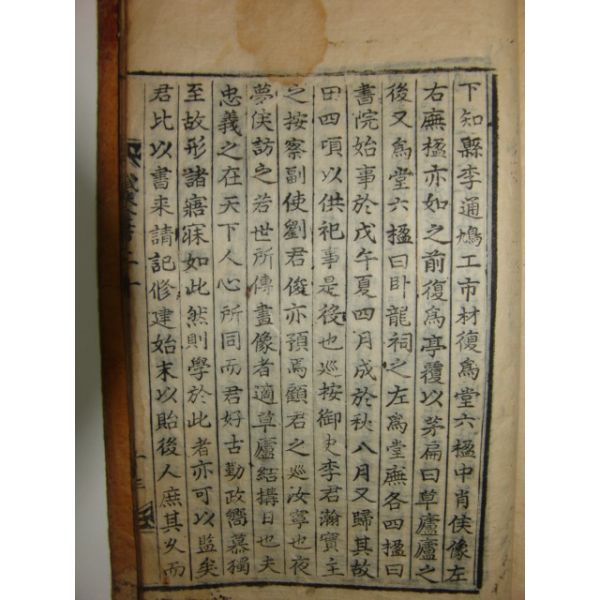 下知縣李通鳩工市材復為堂六楹中肖侯像左
右廡楹亦如之前復為亭覆以茅扁曰草廬廬之
後又為堂六楹曰卧龍祠之左為堂廡各四楹曰
書院始事於戊午夏四月成於秋八月又歸其故
田四項以供祀事是役也巡按御史李君瀚實主
之按察副使劉君俊亦預焉顧君之巡汝寧也夜
夢侯訪之若世所傳畫像者適草廬結構日也夫
忠義之在天下人心所同而君好古勤政嚮慕獨
至故形諸寤寐如此然則學於此者亦可以監矣
君比以書来請記修建始末以貽後人庶其久而